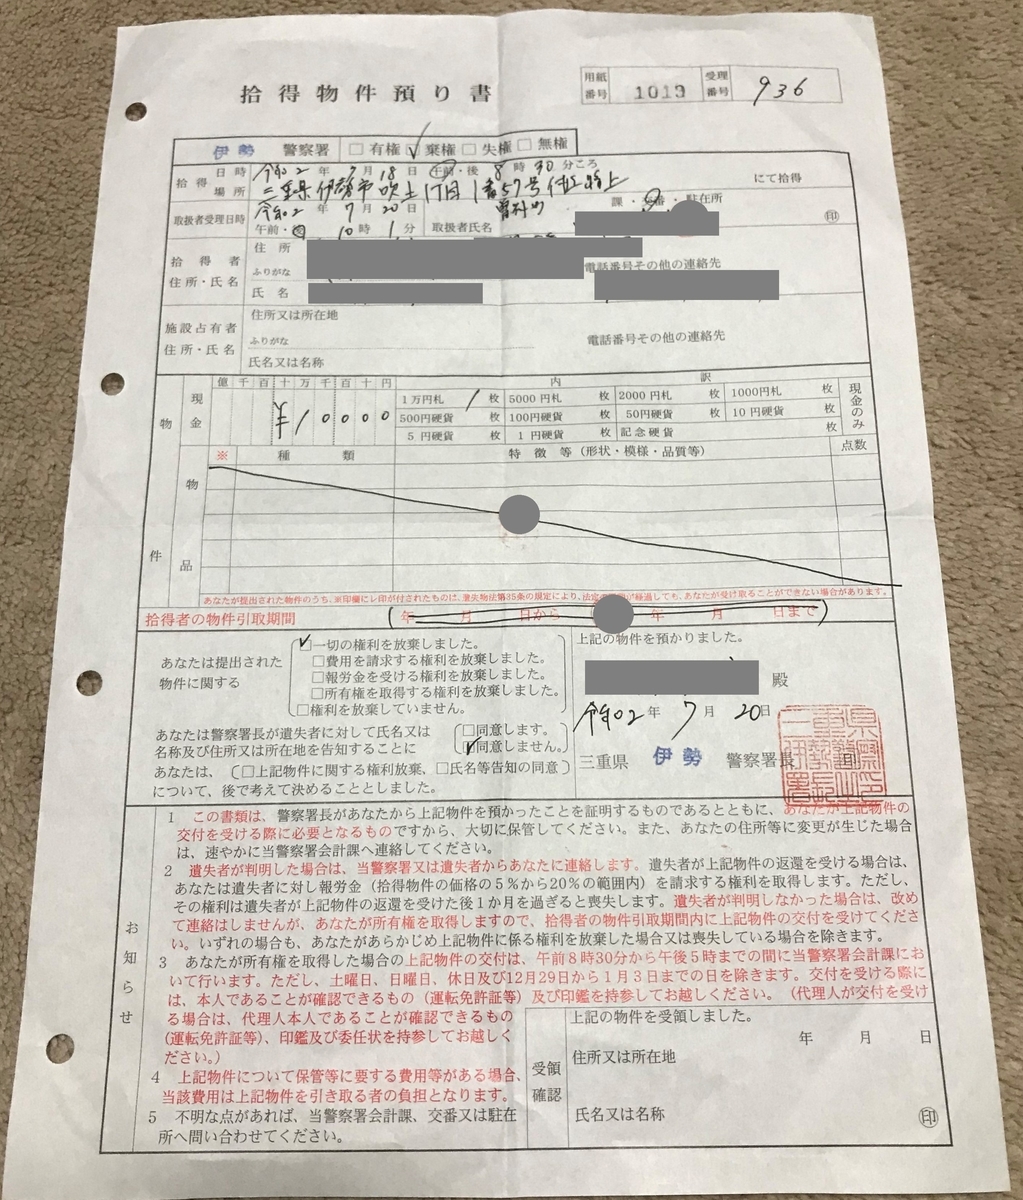 拾得物件預り書
用紙番号 1013 受理番号 936
伊勢 警察署 □有権 ☑棄権 □失権 □無権
拾得 日時 令和2年7月18日 午前・後 8時30分ころ
場所 三重県伊勢市吹上1丁目1番57号付近路上 にて拾得
取扱者受理日時 令和2年7月20日 課・交番・駐在所
午前・後 10時1分 取扱者氏名 ㊞
拾得者 住所
住所・氏名 ふりがな 電話番号その他の連絡先
氏名
施設占有者 住所又は所在地
住所・氏名 ふりがな 電話番号その他の連絡先
氏名又は名称
物件
現金 億千百十万千百十円 内訳 現金のみ
¥10000
1万円札 1枚 5000円札 枚 2000円札 枚 1000円札 枚
500円硬貨 枚 100円硬貨 枚 50円硬貨 枚 10円硬貨 枚
5円硬貨 枚 1円硬貨 枚 記念硬貨 枚
物品 ※ 種類 特徴等(形状・模様・品質等) 点数
あなたが提出された物件のうち、※印欄にレ印が付されたものは、遺失物法第35条の規定により、法定の が経過しても、あなたが受け取ることができない場合があります。
拾得者の物件引取期間 (年 月 日から 年 月 日まで)
あなたは提出された物件に関する
☑一切の権利を放棄しました。
□費用を請求する権利を放棄しました。
□報労金を受ける権利を放棄しました。
□所有権を取得する権利を放棄しました。
□権利を放棄していません。
あなたは警察署長が遺失者に対して氏名又は □同意します。
名称及び住所又は所在地を告知することに ☑同意しません。
あなたは、(□上記物件に関する権利放棄、□氏名等告知の同意)
について、後で考えて決めることとしました。
上記の物件を預かりました。
殿
令和2年7月20日
三重県 伊勢 警察署長
お知らせ
1 この書類は、警察署長があなたから上記物件を預かったことを証明するものであるとともに、あなたが上記物件の
交付を受ける際に必要となるものですから、大切に保管してください。また、あなたの住所等に変更が生じた場合
は、速やかに当警察署会計課へ連絡してください。
2 遺失者が判明した場合は、当警察署又は遺失者からあなたに連絡します。遺失者が上記物件の返還を受ける場合は、
あなたは遺失者に対し報労金(拾得物件の価格の5%から20%の範囲内)を請求する権利を取得します。ただし、
その権利は遺失者が上記物件の返還を受けた後1か月を過ぎると喪失します。遺失者が判明しなかった場合は、改め
て連絡はしませんが、あなたが所有権を取得しますので、拾得者の物件引取期間内に上記物件の交付を受けてくださ
い。いずれの場合も、あなたがあらかじめ上記物件に係る権利を放棄した場合又は喪失している場合を除きます。
3 あなたが所有権を取得した場合の上記物件の交付は、午前8時30分から午後5時までの間に当警察署会計課にお
いて行います。ただし、土曜日、日曜日、休日及び12月29日から1月3日までの日を除きます。交付を受ける際に
は、本人であることが確認できるもの(運転免許証等)及び印鑑を持参してお越しください。(代理人が交付を受け
る場合は、代理人本人であることが確認できるもの
(運転免許証等)、印鑑及び委任状を持参してお越しく
ださい。)
4 上記物件について保管等に要する費用等がある場合、
当該費用は上記物件を引き取る者の負担となります。
5 不明な点があれば、当警察署会計課、交番又は駐在
所へ問い合わせてください。
受領確認
上記の物件を受領しました。
年 月 日
住所又は所在地
氏名又は名称 ㊞